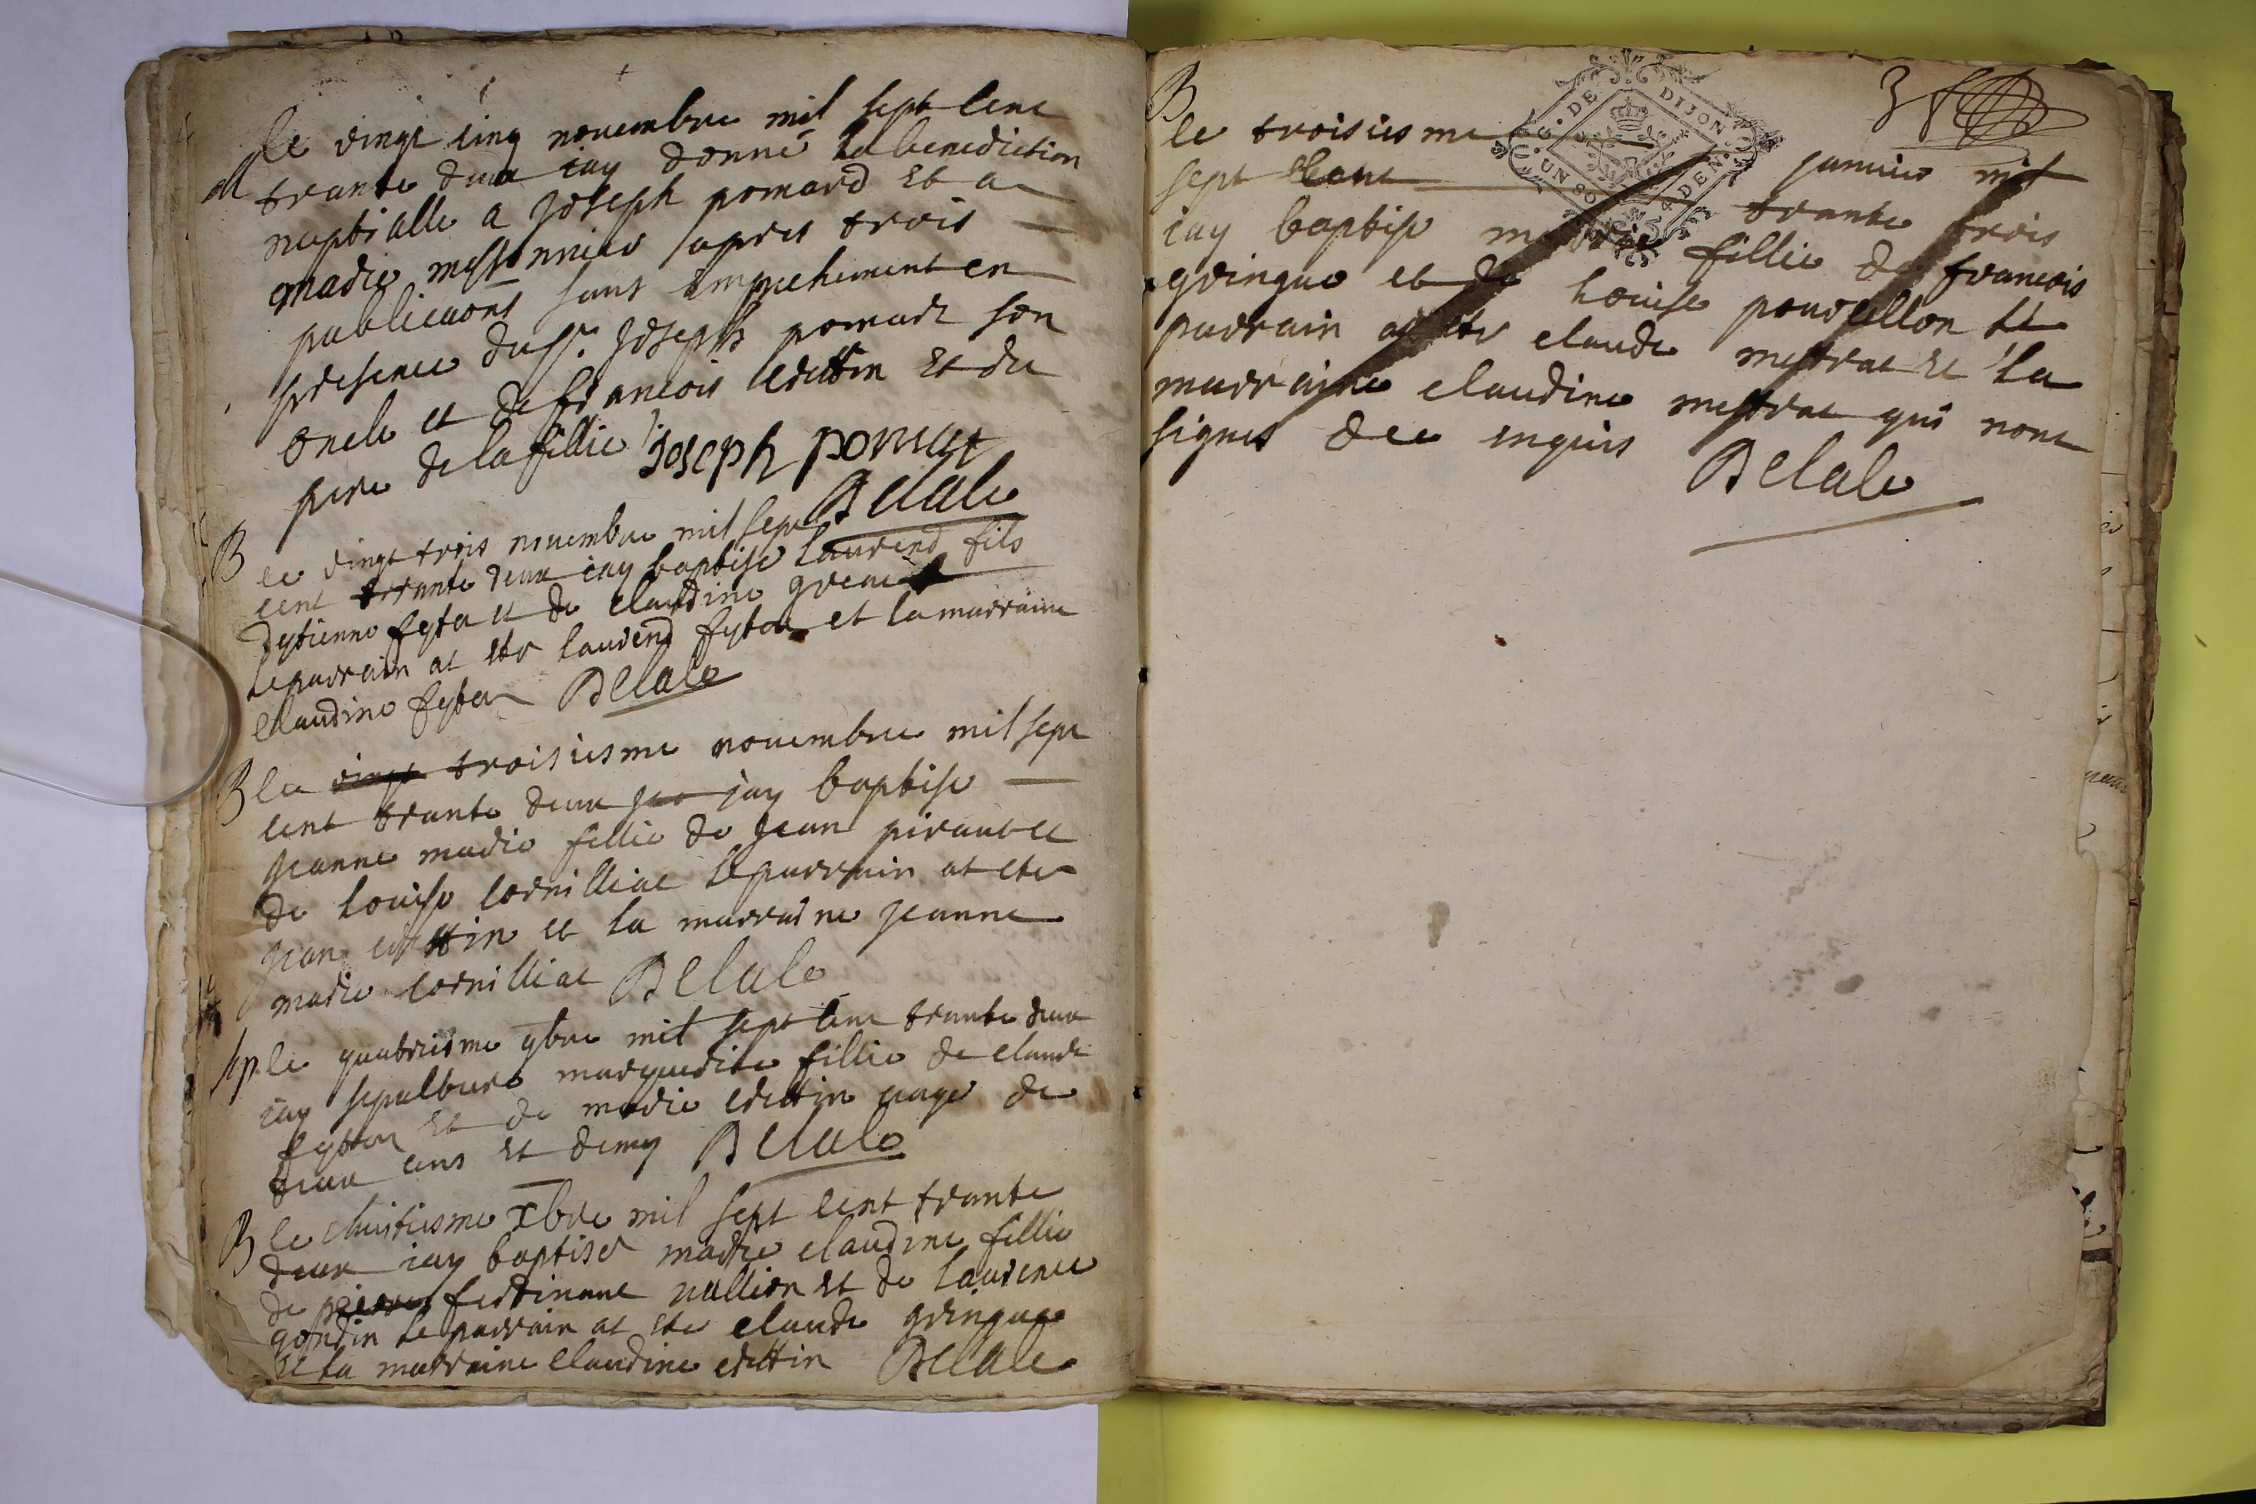 le vingt cinq novembre mil sept cent
M trante deux iay donné la benediction
nuptialle a Joseph pomard et a
marie messonnier apres trois
publicaons sans empechement en
presence du sr. Joseph pomard son
oncle et de francois crettin et du
pere de la fillie Joseph pomat
Belale
B le vingt trois novembre mil sept
cent trante deux iay baptise laurend fils
detienne et de claudine
le parrain at ete laurend et la marraine
claudine Belale
B le vingt troisiesme novembre mil sept
cent trante deux iay baptise
jeanne marie fillie de jean piraut et
de louise cornilliat le parrain at ete
jean crettin et la marraine jeanne
marie cornilliat Belale
Sp le quatriesme 9bre mil sept cent trante deux
iay sepulture marguerite fillie de claude
et de marie crettin aage de
deux ans et demy Belale
B le huitiesme xbre mil sept cent trante
deux iay baptiser marie claudine fillie
de pierre ferdinant vullion et de laurence
gondin le parrain at ete claude gringue
et la marraine claudine crettin Belale
38
C. DE DIJON
UN SOL DEN.
B
le troisiesme janvier mil
sept cent trante trois
iay baptise marie fillie de francois
gringue et de louise pourcellon le
parrain at ete claude mestrat et la
marraine claudine mestrat qui nont
signes de ce enquis
Belale